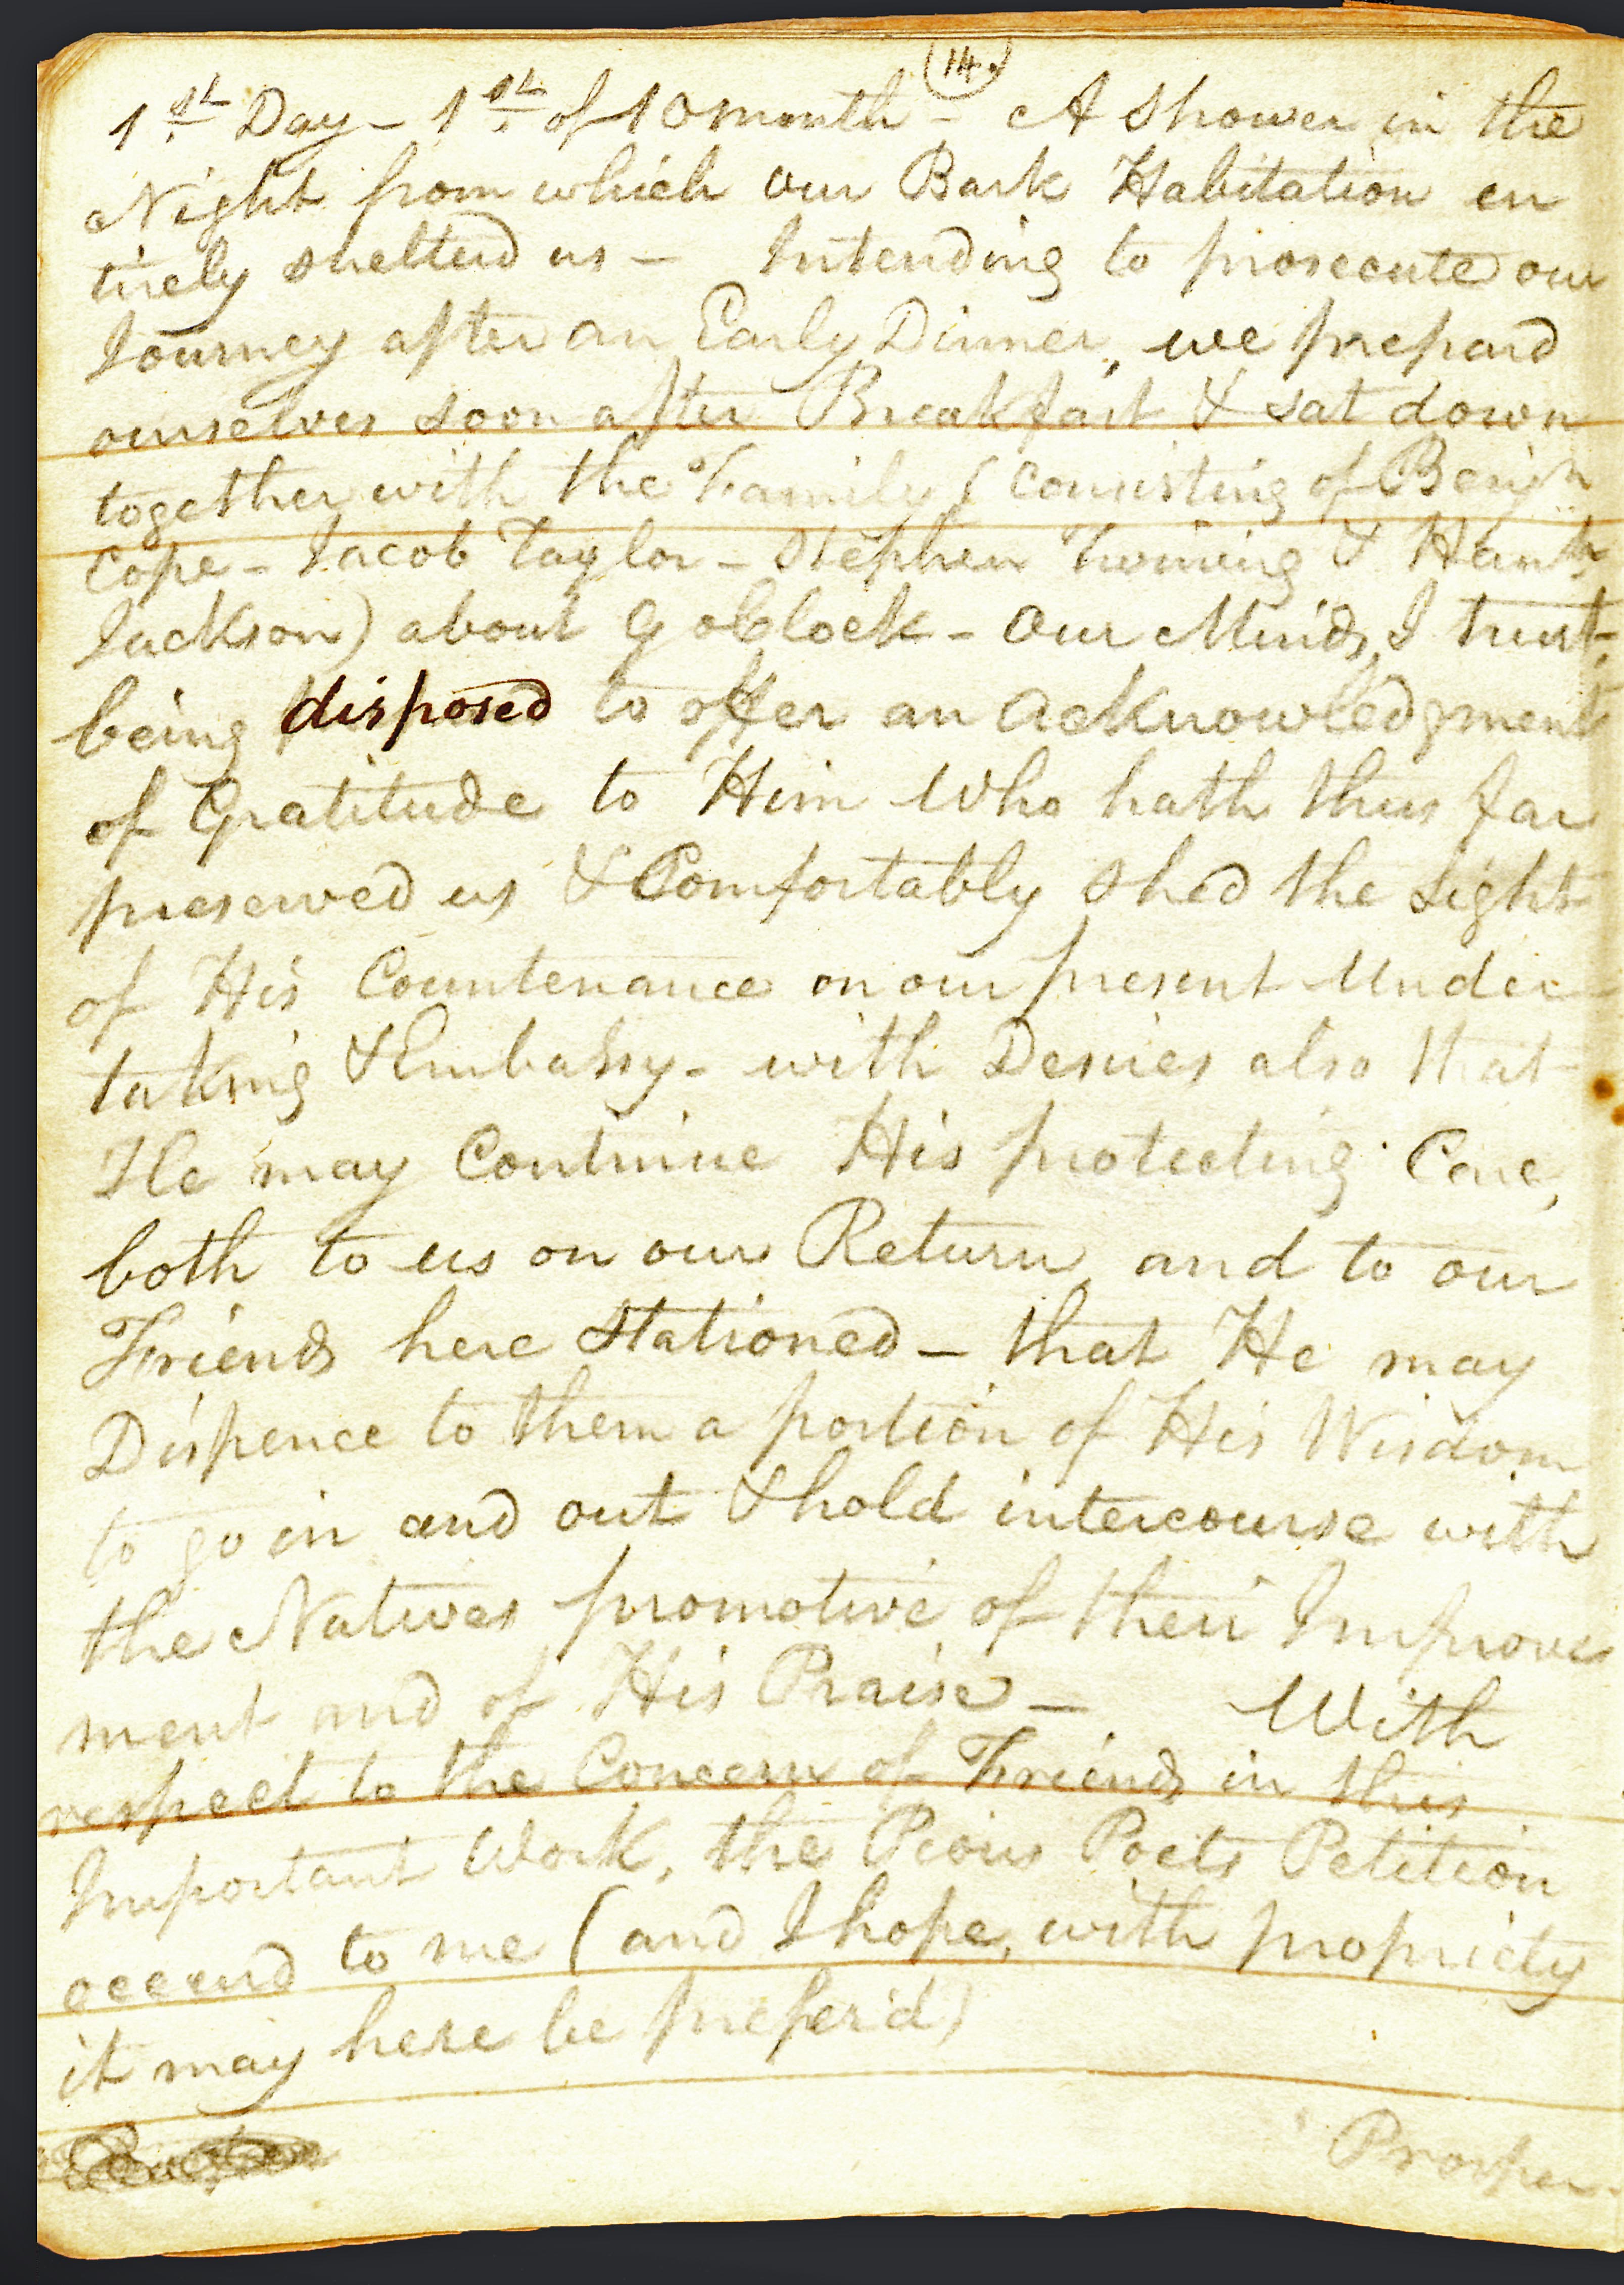 (14.)
1st Day - 1st of 10 month - A Shower in the
Night from which our Bark Habitation en
tirely shelterd us - Intending to prosecute our
Journey after an Early Dinner, we prepard
ourselves soon after Breakfast & sat down
together with the Family (Consisting of Benjn
Cope - Jacob Taylor - Stephen Twining & Hanh
Jackson) about 9 oClock - Our Minds, I trust,
being disposed to offer an acknowledgment
of Gratitude to Him Who hath thus far
preserved us & Comfortably Shed the Light
of His Countenance on our present Under
taking & Embassy - with Desires also that
He may Continue His protecting Care,
both to us on our Return and to our
Friends here Stationed - that He may
Dispence to them a portion of His Wisdom
to go in and out & hold intercourse with
the Natives promotive of their Improve
ment and of His Praise - With
respect to the Concern of Friends in this
Important Work, the Pious Poets Petition
occurd to me (and I hope, with propriety
it may here be prefer'd)
Prosper